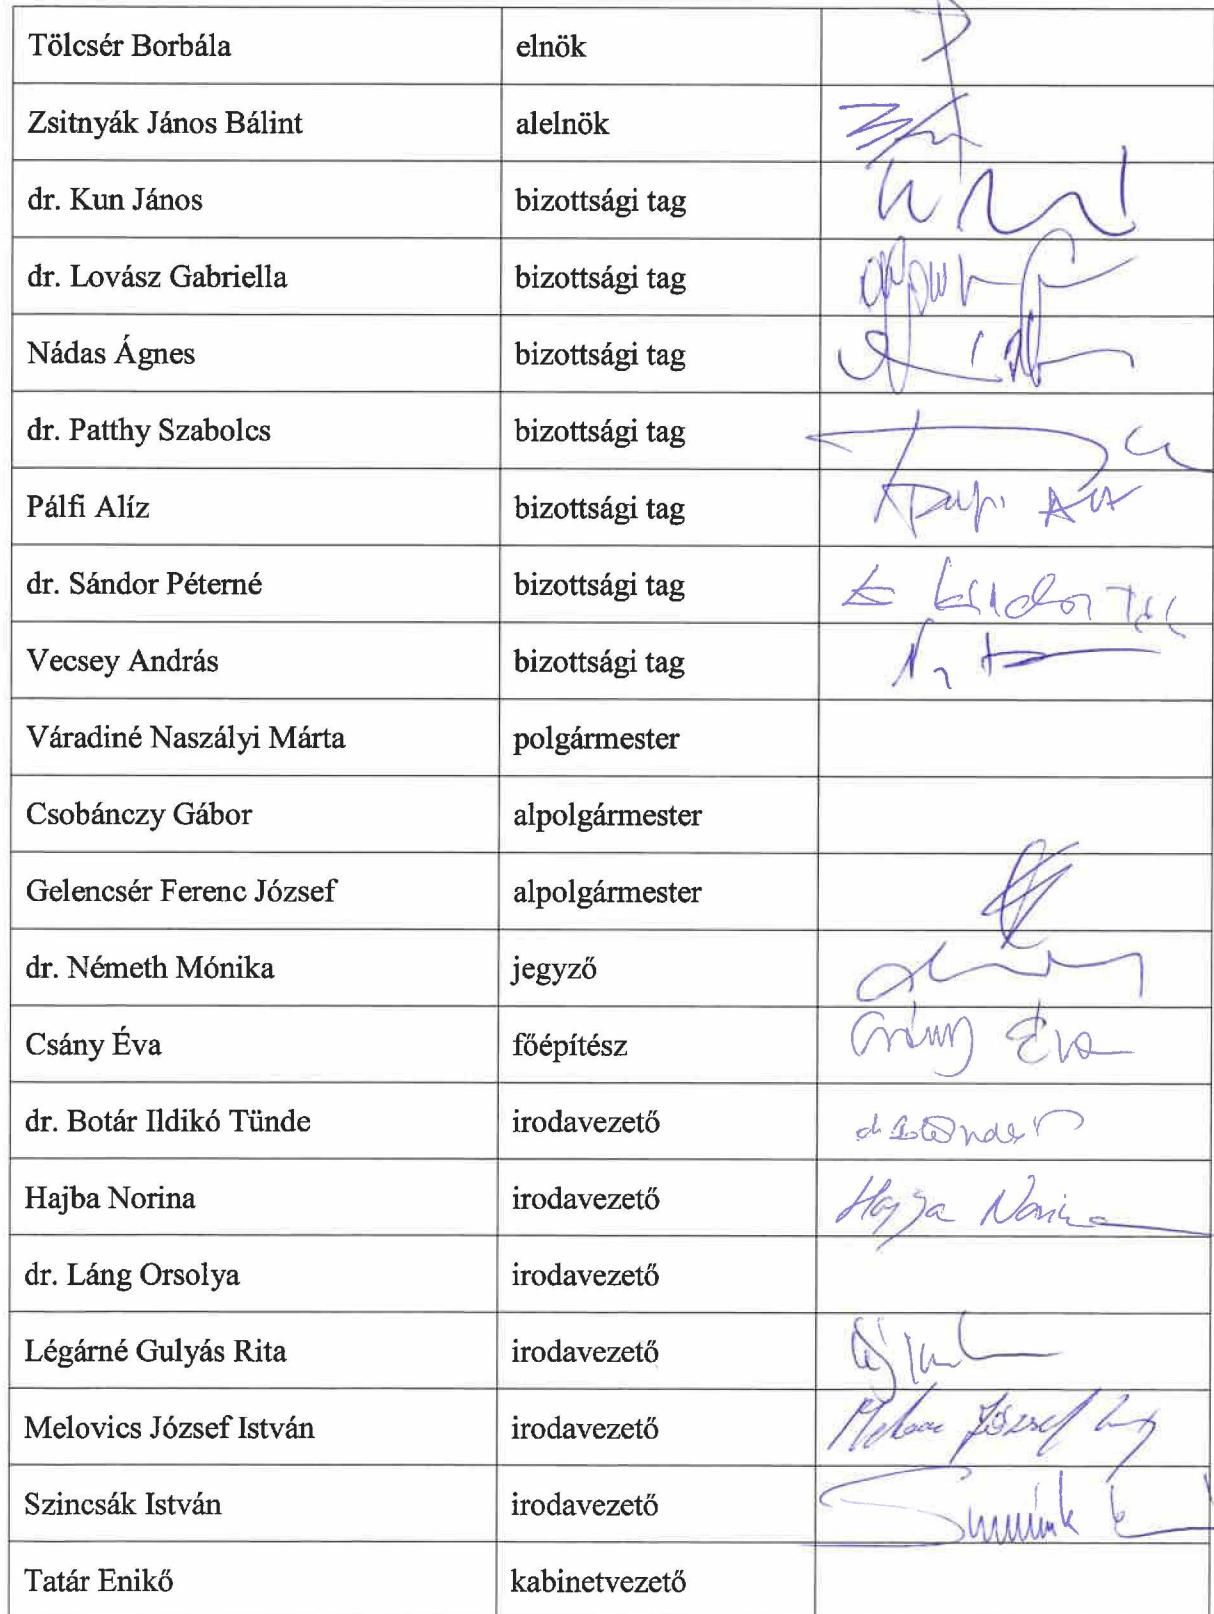 Tölcsér Borbála elnök
Zsitnyák János Bálint alelnök
dr. Kun János bizottsági tag
dr. Lovász Gabriella bizottsági tag
Nádas Ágnes bizottsági tag
dr. Patthy Szabolcs bizottsági tag
Pálfi Alíz bizottsági tag
dr. Sándor Péterné bizottsági tag
Vecsey András bizottsági tag
Váradiné Naszályi Márta polgármester
Csobánczy Gábor alpolgármester
Gelencsér Ferenc József alpolgármester
dr. Németh Mónika jegyző
Csány Éva főépítész Csány Éva
dr. Botár Ildikó Tünde irodavezető
Hajba Norina irodavezető Hajba Norina
dr. Láng Orsolya irodavezető
Légárné Gulyás Rita irodavezető
Melovics József István irodavezető
Szincsák István irodavezető
Tatár Enikő kabinetvezető